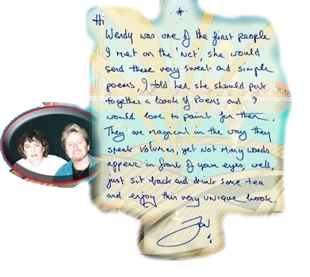 Hi
Wendy was one of the first people
I met on the 'Net', she would
send these very sweet and simple
poems, I told her she should put
together a book of Poems and I
would love to paint for them.
They are magical in the way they
speak volumes, yet not Many words
appear in front of your eyes, well,
just sit back and drink some tea
and enjoy this very unique book.